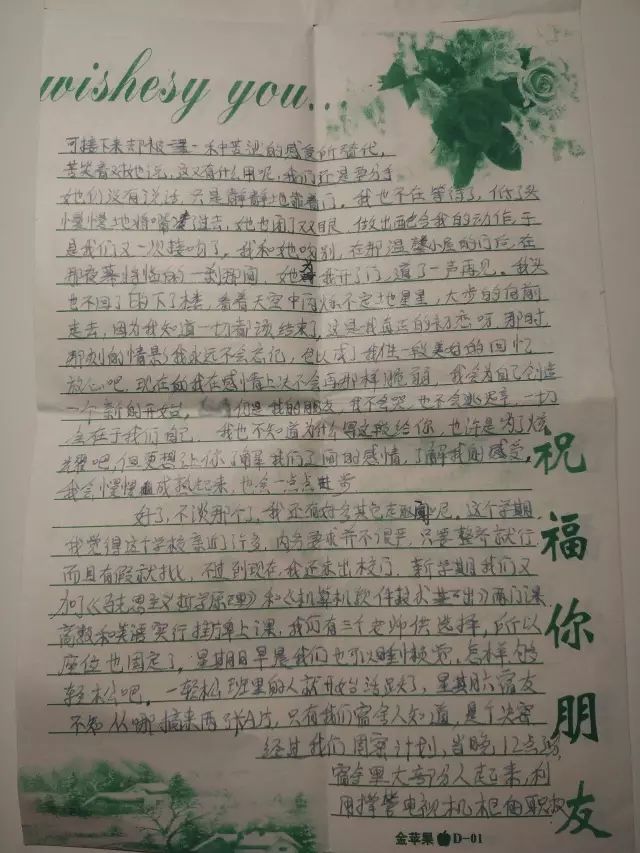 wishesy you...
可接下来却被一种苦涩的感受所替代,
苦笑着对她说,这又有什么用呢,我们还是要分手
她们没有说话,只是静静地靠着门。我也不在等待了,低了头
慢慢地将嘴凑了过去,她也闭了双眼,做出配合我的动作,于
是我们又一次接吻了。我和她吻别,在那温馨小屋的门后,在
那夜幕将临的一刹那间,她为我开了门,道了一声再见。我头
也不回了的下了楼,看着天空中闪烁不定地星星,大步的向前
走去,因为我知道一切都该结束了,这是我真正的初恋呀,那时
那刻的情景我永远不会忘记,也以成了我唯一一段美好的回忆
放心吧,现在的我在感情上次不会再那样脆弱,我会为自己创造
一个新的开始。你是我的朋友,我不会哭,也不会逃避,一切
会在于我们自己,我也不知道为什么写这段给你,也许是为了炫
耀吧,但更想让你了解我们之间的感情,了解我的感受,
我会慢慢成熟起来,也会一点点进步
好了,不谈那个了,我还有好多其它走取呢,这个学期,
我觉得这个学校亲近了许多,内务要求并不很严,只要整齐就行
而且有假就批,不过到现在,我还未出校门,新学期我们又
加了《马克思主义哲学原理》和《计算机软件技术基础》两门课
高数和英语实行挂牌上课,我们有三个老师供选择,所以
座位也固定了,星期日早晨我们也可以睡懒觉,怎样够
轻松吧。一轻松,班里的人就开始活跃了,星期六宿友
不知从哪搞来两张A片,只有我们宿舍人知道,是个决密
经过我们周密计划,当晚12点,
宿舍里大部分人起来,利
用掌管电视机柜的职权
祝福你朋友
金苹果 D-01